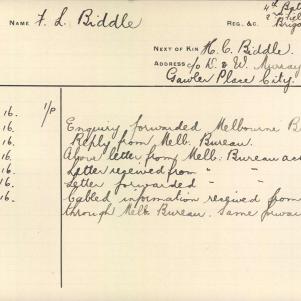 NAME F. L. Biddle REG. &C.
NEXT OF KIN H. C. Biddle.
ADDRESS c/o D. & W. Murray
Gawler Place City.
16. 1/P Enquiry forwarded Melbourne B
16. Reply from Melb. Bureau.
16. Above letter from Melb. Bureau ac
16. Letter received from " "
16. Letter forwarded " "
16. Cabled information received from
through Melb. Bureau. Same forwar